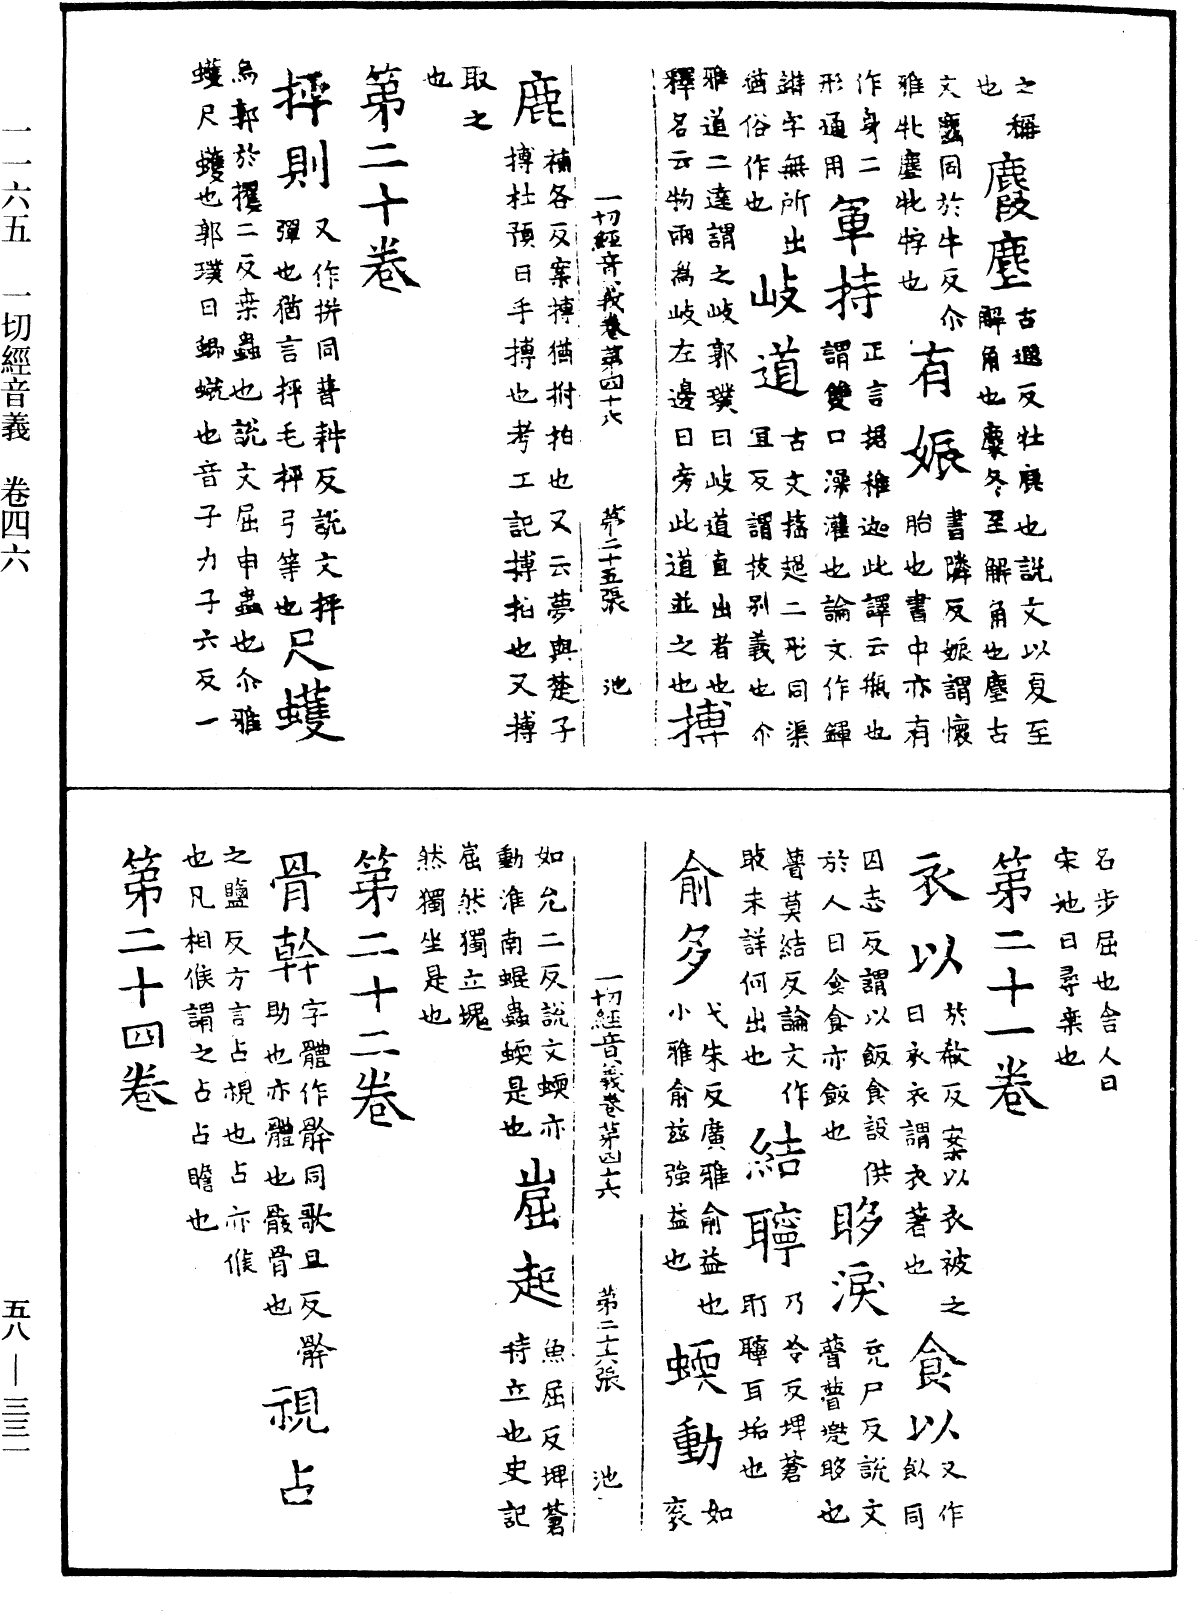 一一六五　一切經音義　卷四六
五八—三三一
之稱
也
麚麈
古遐反牡鹿也說文以夏至
解角也麋冬至解角也麈古
文麤同於牛反尒
雅牝麈牝牸也
有娠
書隣反娠謂懷
胎也書中亦有
作身二
形通用
軍持
正言捃稚迦此譯云瓶也
謂雙口澡灌也論文作鍕
諸字無所出
猶俗作也
岐道
古文𢺵𨙸二形同渠
冝反謂技别義也尒
雅道二達謂之岐郭璞曰岐道直出者也
釋名云物兩爲岐左邊曰旁此道並之也
搏
一切經音義卷第四十六　第二十五張　池
鹿
補各反案搏猶拊拍也又云夢與楚子
搏杜預曰手搏也考工記搏拍也又搏
取之
也
第二十卷
抨則
又作拼同普耕反說文抨
彈也猶言抨毛抨弓等也
尺蠖
烏郭於擭二反桒蟲也說文屈申蟲也尒雅
蠖尺蠖也郭璞曰蝍䗩也音子力子六反一
名步屈也舍人曰
宋地曰尋桒也
第二十一卷
衣以
於旣反案以衣被之
曰衣衣謂衣著也
食以
又作
飤同
囚志反謂以飯食設供
於人曰食食亦飯也
眵淚
充尸反說文
瞢瞢𠒎眵也
瞢莫結反論文作
䀛未詳何出也
結聹
乃冷反埤蒼
耵聹耳垢也
俞多
弋朱反廣雅俞益也
小雅俞茲強益也
蝡動
如
兖
如允二反說文蝡亦
動淮南蜫蟲蝡是也
崛起
魚屈反埤蒼
特立也史記
崫然獨立塊
然獨坐是也
一切經音義卷第四十六　第二十六張　池
第二十二卷
骨幹
字體作骭同歌旦反骭
助也亦體也骸骨也
視占
之鹽反方言占視也占亦候
也凡相候謂之占占瞻也
第二十四卷